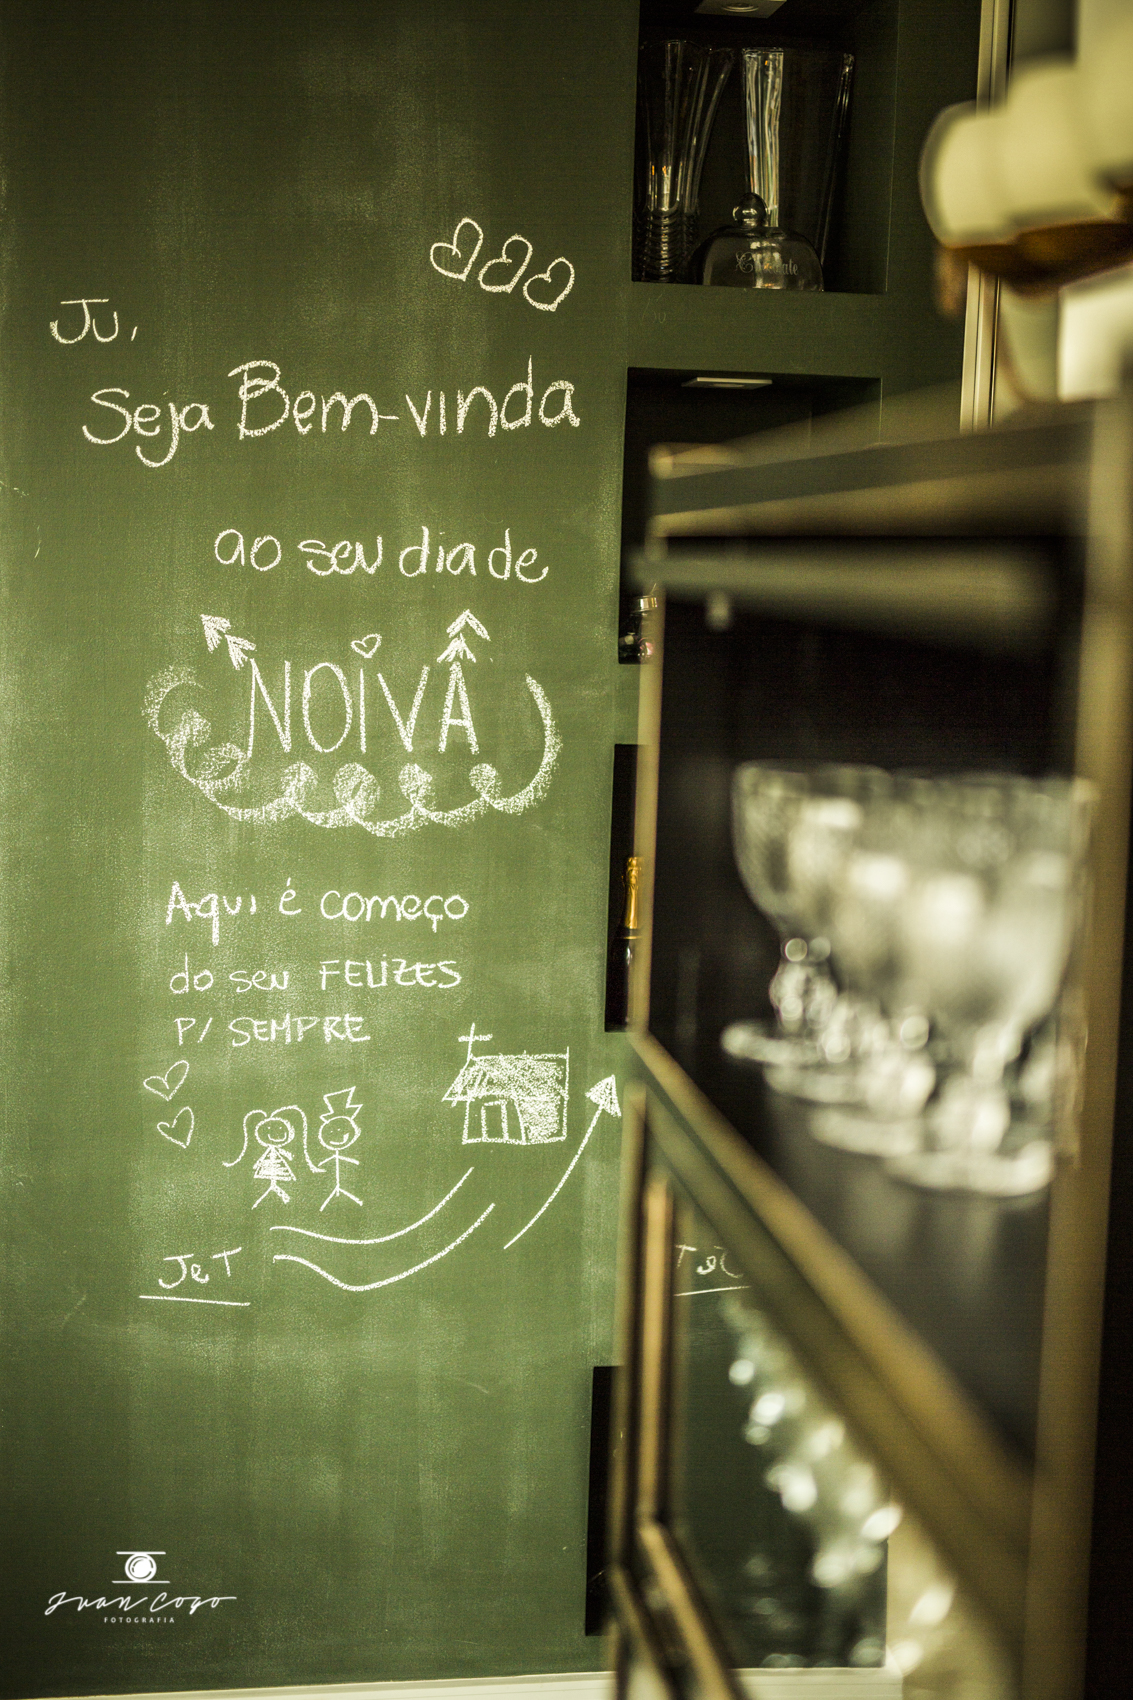 Ju,
Seja Bem-vinda
ao seu dia de
NOIVA
Aqui é começo
do seu FELIZES
P/ SEMPRE
JeT
Chocolate
Juan Cogo
FOTOGRAFIA